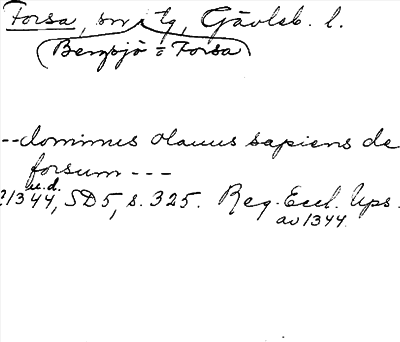 Forsa, sn o tg, Gävleb. l.
(Bergsjö = Forsa)
--dominus Olauus sapiens de
forsum ---
u.d.
?1344, SD5, s. 325. Reg. Eccl. Ups.
av 1344.